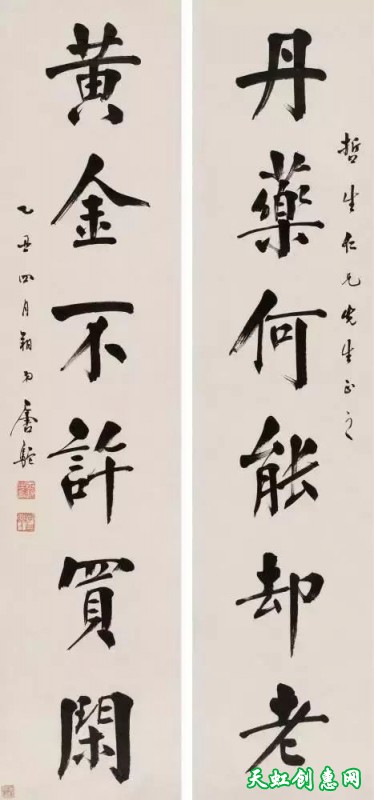 哲生仁兄先生正之
丹藥何能却老
黃金不許買閑
乙丑四月朔日唐駝
天虹创惠网